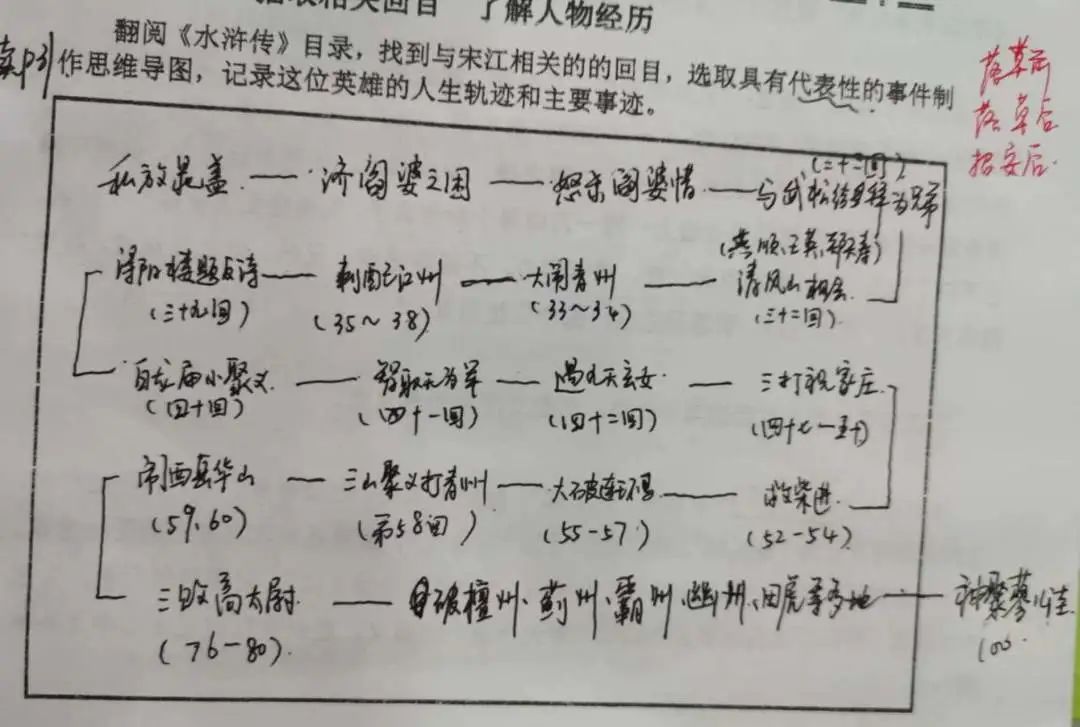 相关回目 了解人物经历
翻阅《水浒传》目录，找到与宋江相关的的回目，选取具有代表性的事件制
作思维导图，记录这位英雄的人生轨迹和主要事迹。
落草前
落草后
招安后
(二十三回)
私放晁盖 — 济阎婆之困 — 怒杀阎婆惜 — 与武松结拜为兄弟
(燕顺、王英、郑天寿)
浔阳楼题反诗 — 刺配江州 — 大闹青州 清风山相会
(三十九回) (35~38) (33~34) (三十二回)
白龙庙小聚义 — 智取无为军 — 遇九天玄女 — 三打祝家庄
(四十回) (四十一回) (四十二回) (四十七—五十)
闹西岳华山 — 三山聚义打青州 — 大破连环马 — 救柴进
(59、60) (第58回) (55-57) (52-54)
三败高太尉 — 破檀州、蓟州、霸州、幽州、田虎等多地 — 神聚蓼儿洼
(76-80) (100